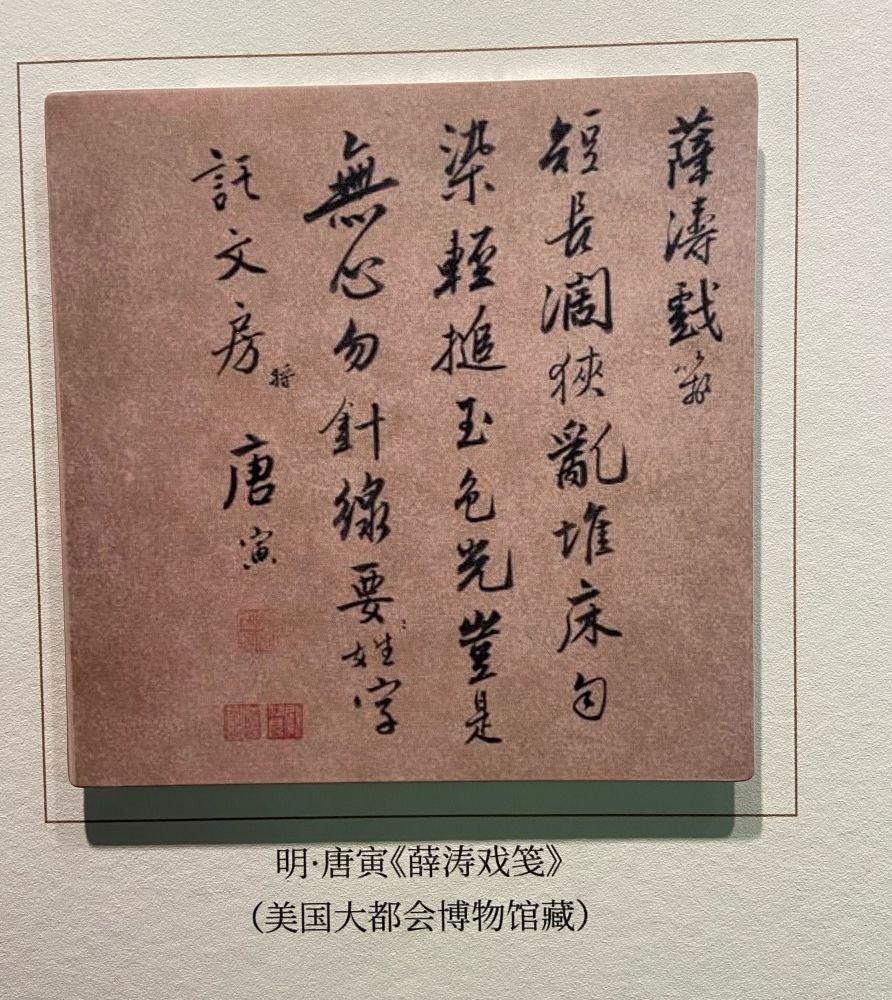 薛濤戲箋
短長濶狹亂堆床匀
染輕搥玉色光豈是
無心勿針線要姓字
託文房 將 唐寅
明·唐寅《薛涛戏笺》
（美国大都会博物馆藏）